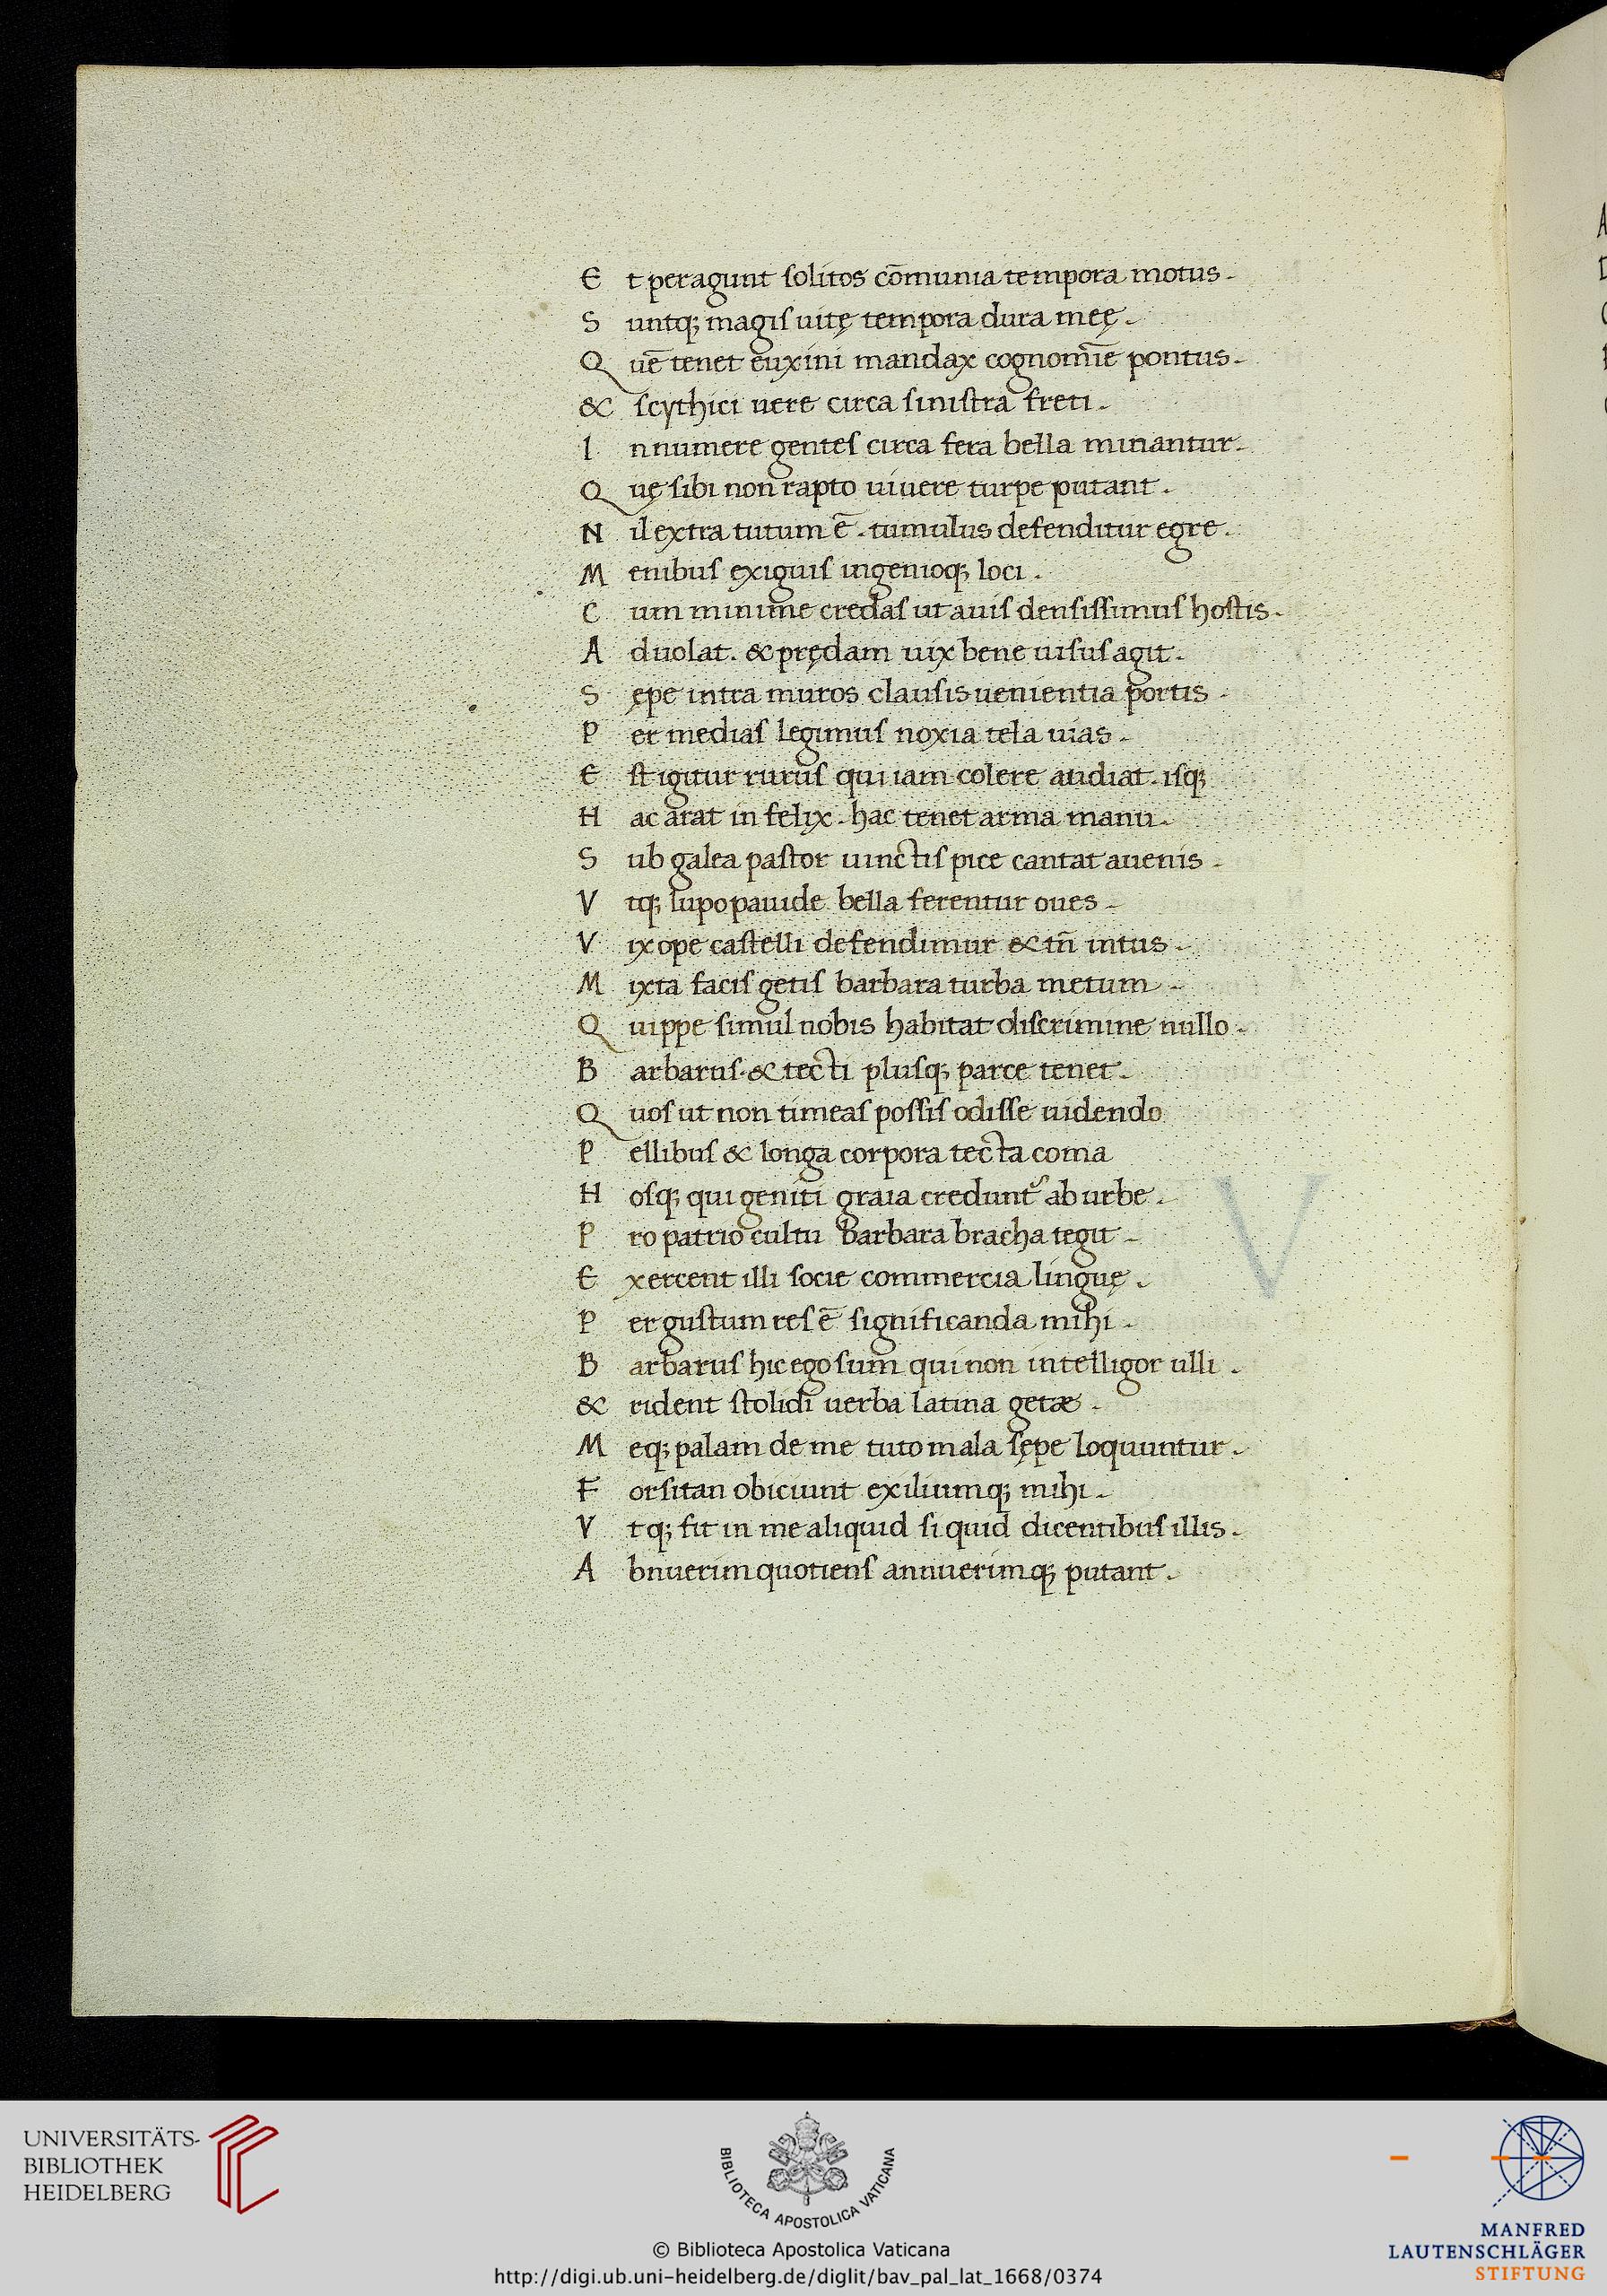 E t peragunt ſolitos cōmunia tempora motus.
S untq; magiſ uitę tempora dura meę.
Q uē tenet euxini mandax cognomīe pontus.
& ſcythici uere circa ſiniſtra freti.
I nnumere genteſ circa fera bella minantur.
Q uę ſibi non rapto uiuere turpe putant.
N il extra tutum ē. tumulus defenditur egre.
M enibuſ exiguiſ ingenioq; loci.
C um minime credaſ ut auiſ denſiſſimuſ hoſtis.
A duolat. & prędam uix bene uiſuſ agit.
S ępe intra muros clauſis uenientia portis.
P er mediaſ legimuſ noxia tela uias.
E ſt igitur ruruſ qui iam colere audiat. iſq;
H ac arat in felix. hac tenet arma manu.
S ub galea paſtor uinctiſ pice cantat auenis.
V tq; lupo pauide bella ferentur oues.
V ix ope caſtelli defendimur & tn̄ intus.
M ixta faciſ getiſ barbara turba metum.
Q uippe ſimul nobis habitat diſcrimine nullo.
B arbaruſ. & tecti pluſq; parce tenet.
Q uoſ ut non timeaſ poſſiſ odiſſe uidendo
P ellibuſ & longa corpora tecta coma
H oſq; qui geniti graia credunt᷑ ab urbe.
P ro patrio cultu Barbara bracha tegit.
E xercent illi ſocie commercia linguę.
P er guſtum reſ ē ſignificanda mihi.
B arbaruſ hic ego ſum qui non intelligor ulli.
& rident ſtolidi uerba latina getæ.
M eq; palam de me tuto mala ſępe loquuntur.
F orſitan obiciunt exiliumq; mihi.
V tq; fit in me aliquid ſi quid dicentibuſ illis.
A bnuerim quotienſ annuerimq; putant.
V
UNIVERSITÄTS-
BIBLIOTHEK
HEIDELBERG
BIBLIOTECA APOSTOLICA VATICANA
© Biblioteca Apostolica Vaticana
http://digi.ub.uni-heidelberg.de/diglit/bav_pal_lat_1668/0374
MANFRED
LAUTENSCHLÄGER
STIFTUNG